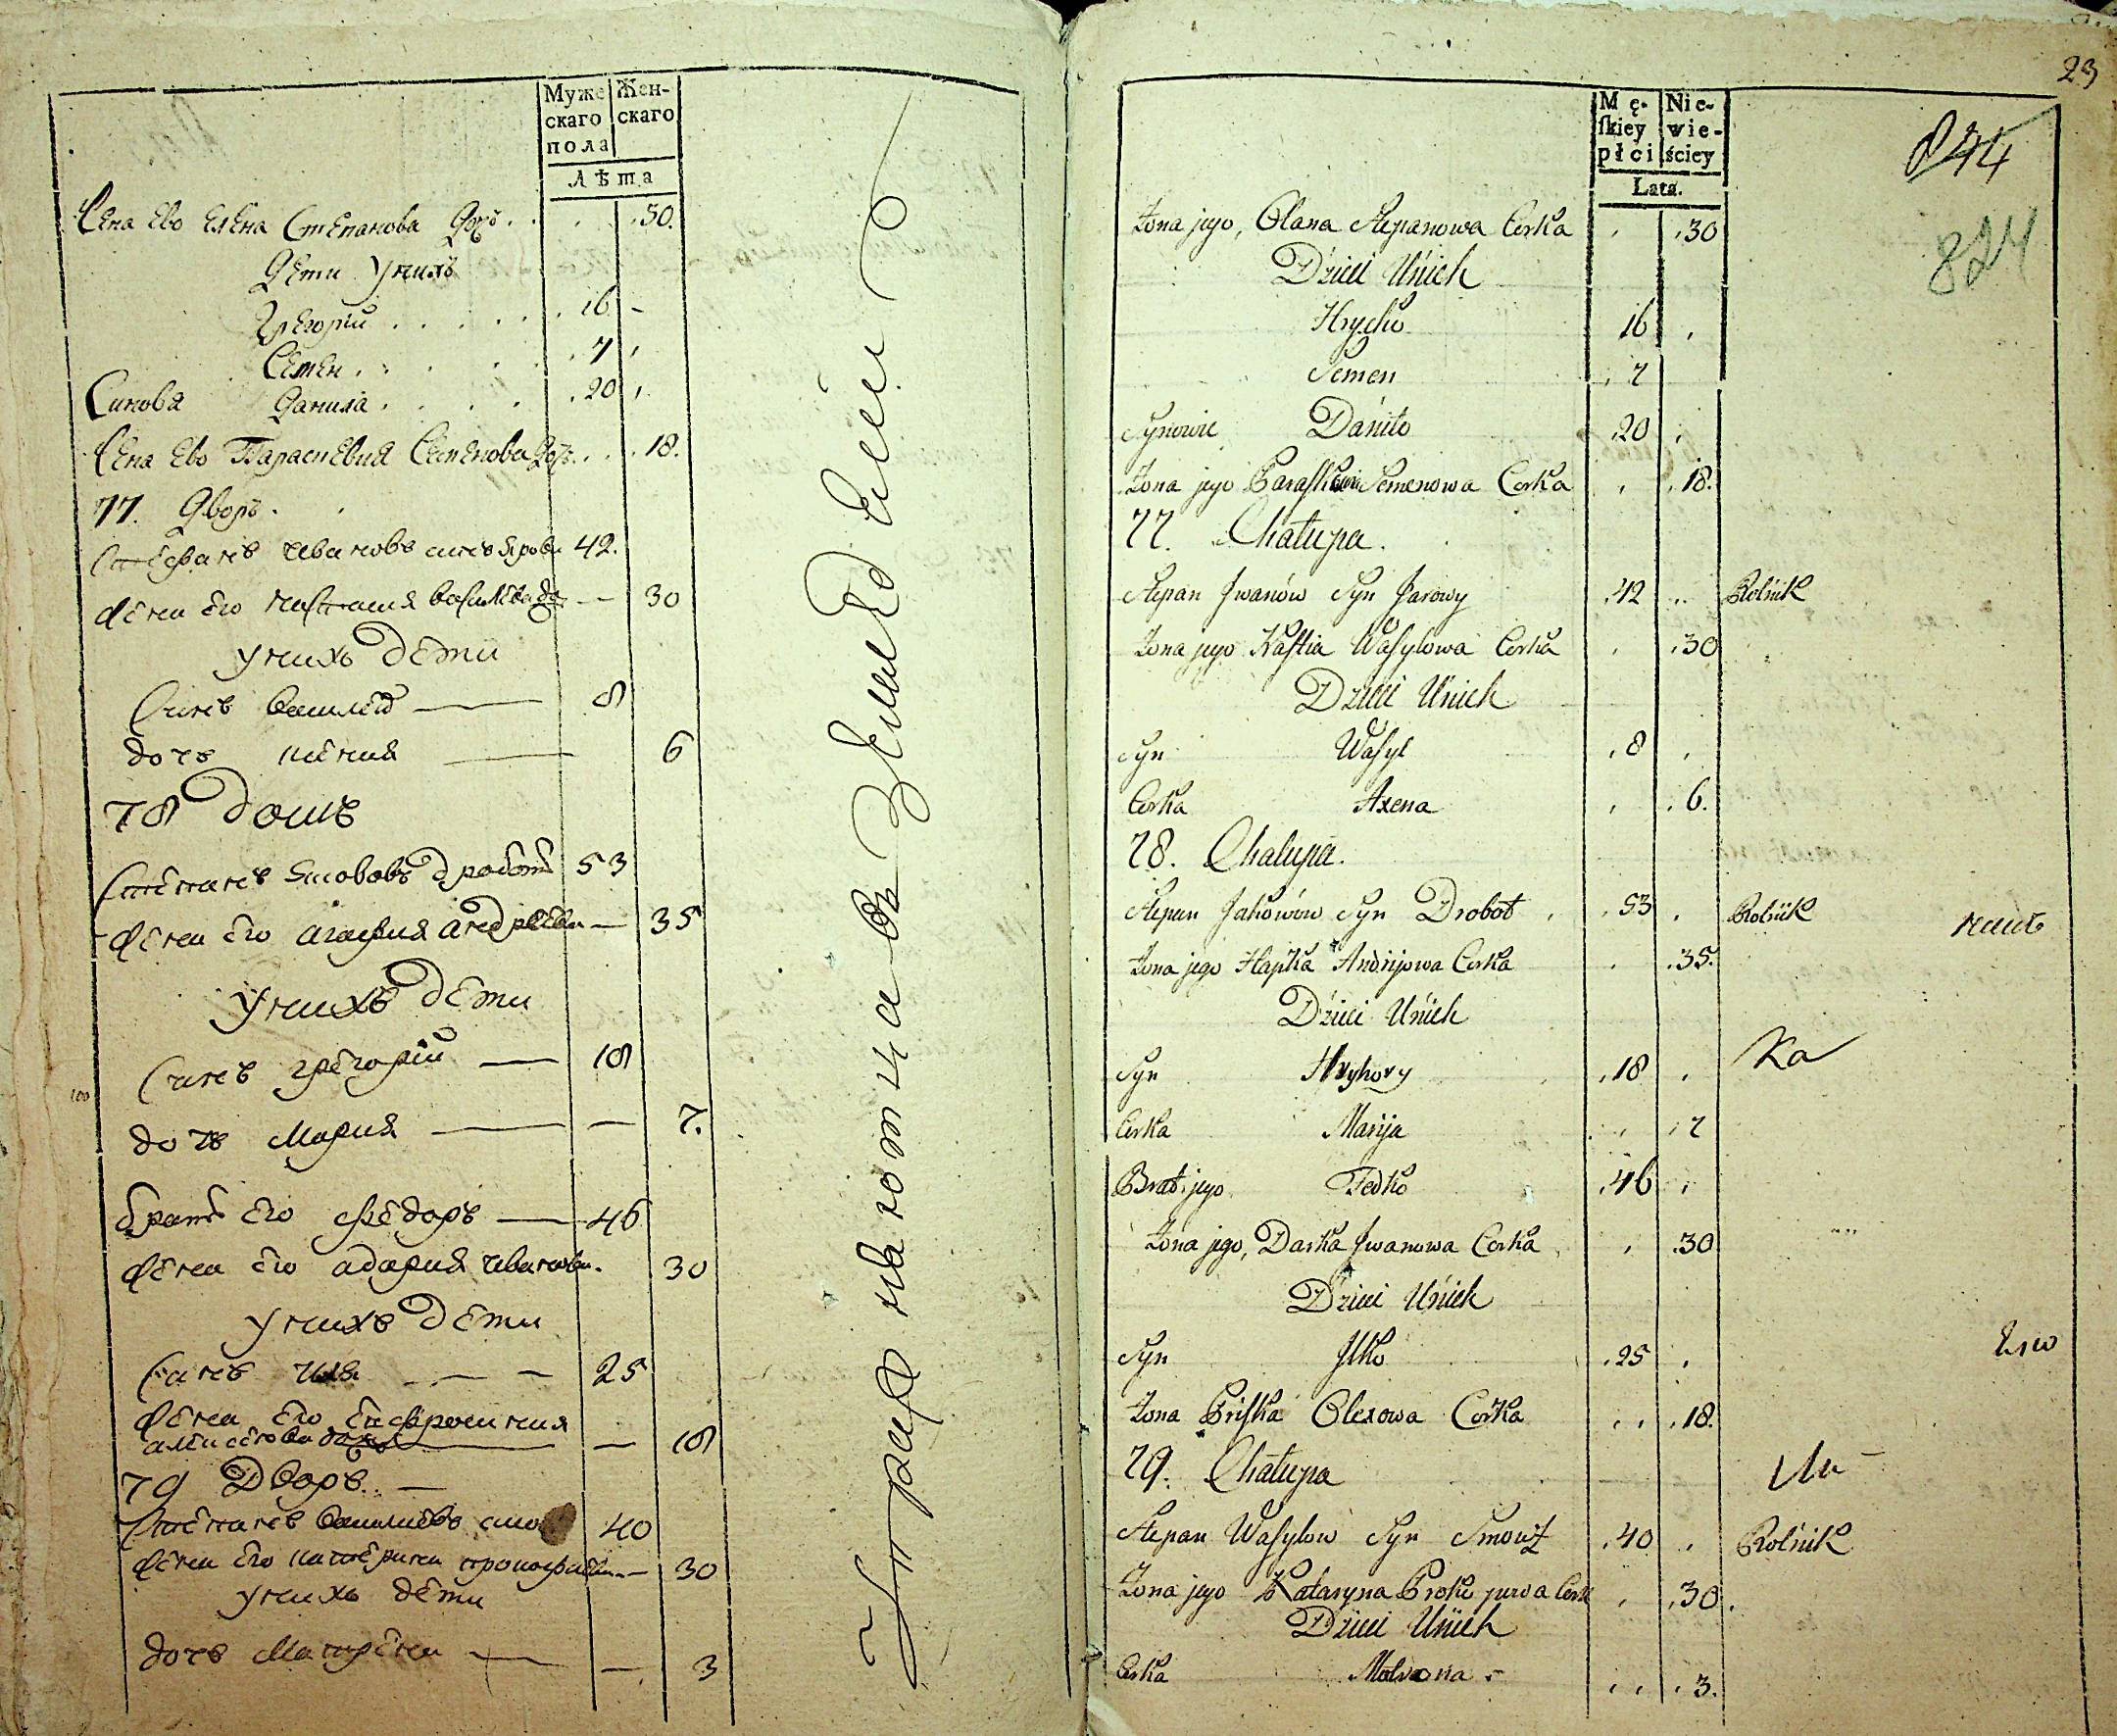 Муже
скаго
пола
Жен-
скаго
Лѣта
Жена Ево Елена Степанова Дочь . . 30.
Дети Унихъ
Григорiи . . . . . 16 -
Семен . . . . 7
Синова Данила . . . . 20
Жена Ево Параскевия Семенова Дочь . . . 18.
77. Дворъ.
Стефанъ Ивановъ синъ Ярови 42.
Жена Его настасия василева До — 30
Унихъ Дети
Синъ василей — 8
дочъ ксения — 6
78 Домъ
Степанъ Якововъ Дробот 53
Жена Его агафия андреева — 35
Унихъ Дети
Синъ григорiй — 18
дочъ Мария — — 7.
братъ Его Федоръ — 46
Жена Его адария ивановна. 30
Унихъ Дети
Синъ илия — — 25
Жена Его Ефросиния
алексеева дочь — — 18
79 Дворъ. —
Степанъ василиевъ 40
Жена Его катерина прокофиева — 30
Унихъ дети
дочъ Матрена — — 3
23
Mę-
ſkiey
płci
Nie-
wie-
ściey
Lata.
844
824
Żona jego, Olana Stepanowa Corka . . 30
Dzieci Unich
Hrycko 16 .
Semen . 7
Synowie Daniło . 20 .
Żona jego Paraſkewia Semenowa Corka . . 18.
77. Chałupa.
Stepan Jwanów Syn Jarowy . 42 .. Rolnik
Żona jego Naſtia Waſylowa Corka . . 30
Dzieci Unich
Syn Waſyl . 8 .
Corka Axena . . 6.
78. Chałupa.
Stepan Jakowow Syn Drobot . . 53 . Rolnik
Żona jego Hapka Andrijowa Corka . . 35.
Dzieci Unich
Syn Hryhory . 18 .
Ка
Corka Marija . . 7
Brat jego Fedko . 46 .
Żona jego, Darka Jwanowa Corka . . 30
Dzieci Unich
Syn Jlko . 25 .
Żona Priſka Olexowa Corka . . . 18.
79. Chałupa
Stepan Waſylow Syn . 40 . Rolnik
Żona jego Kataryna Corka . . 30.
Dzieci Unich
Corka Motrona . . . 3.